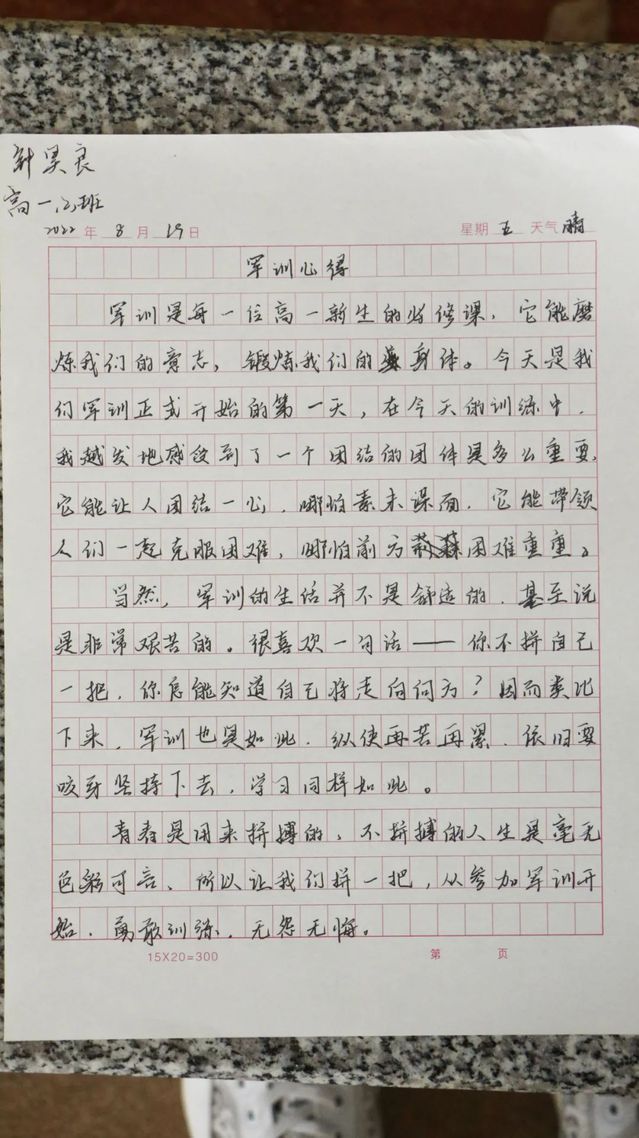 昊良
高一班
2022年8月19日 星期五 天气晴
军训心得
军训是每一位高一新生的必修课，它能磨
炼我们的意志，锻炼我们的身体。今天是我
们军训正式开始的第一天，在今天的训练中，
我越发地感受到了一个团结的团体是多么重要，
它能让人团结一心，哪怕素未谋面，它能带领
人们一起克服困难，哪怕前方困难重重。
当然，军训的生活并不是舒适的，甚至说
是非常艰苦的。很喜欢一句话——你不拼自己
一把，你怎能知道自己将走向何方？因而类比
下来，军训也是如此，纵使再苦再累，依旧要
咬牙坚持下去，学习同样如此。
青春是用来拼搏的，不拼搏的人生是毫无
色彩可言、所以让我们拼一把，从参加军训开
始，勇敢训练，无怨无悔。
15X20=300 第 页